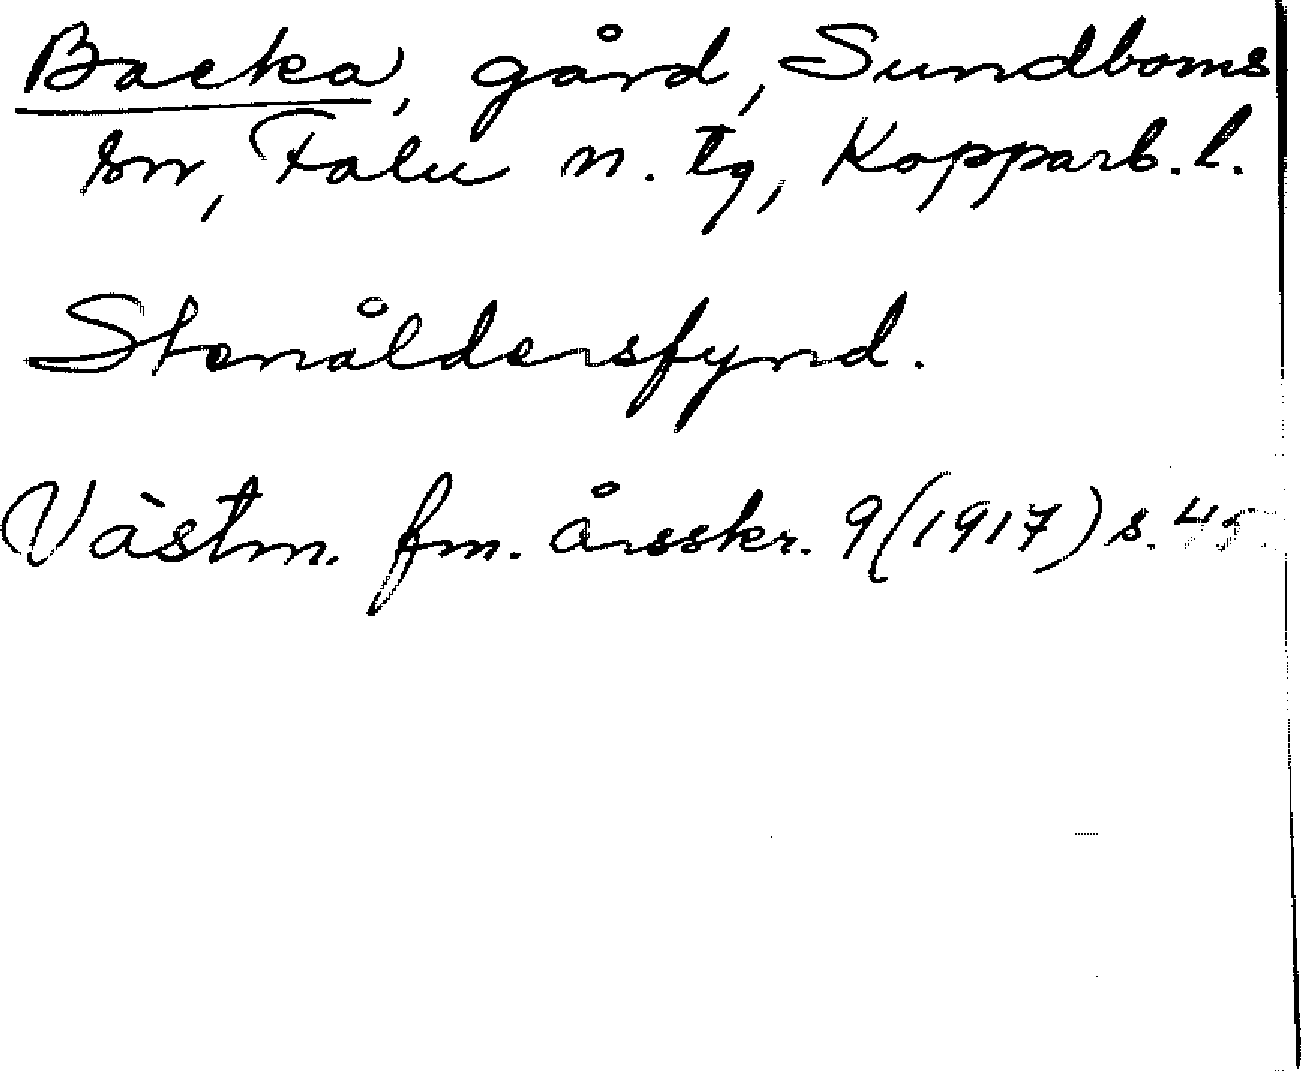 Backa, gård, Sundboms
sn, Falu n. tg, Kopparb. l.
Stenåldersfynd.
Västm. fm. årsskr. 9 (1917) s.